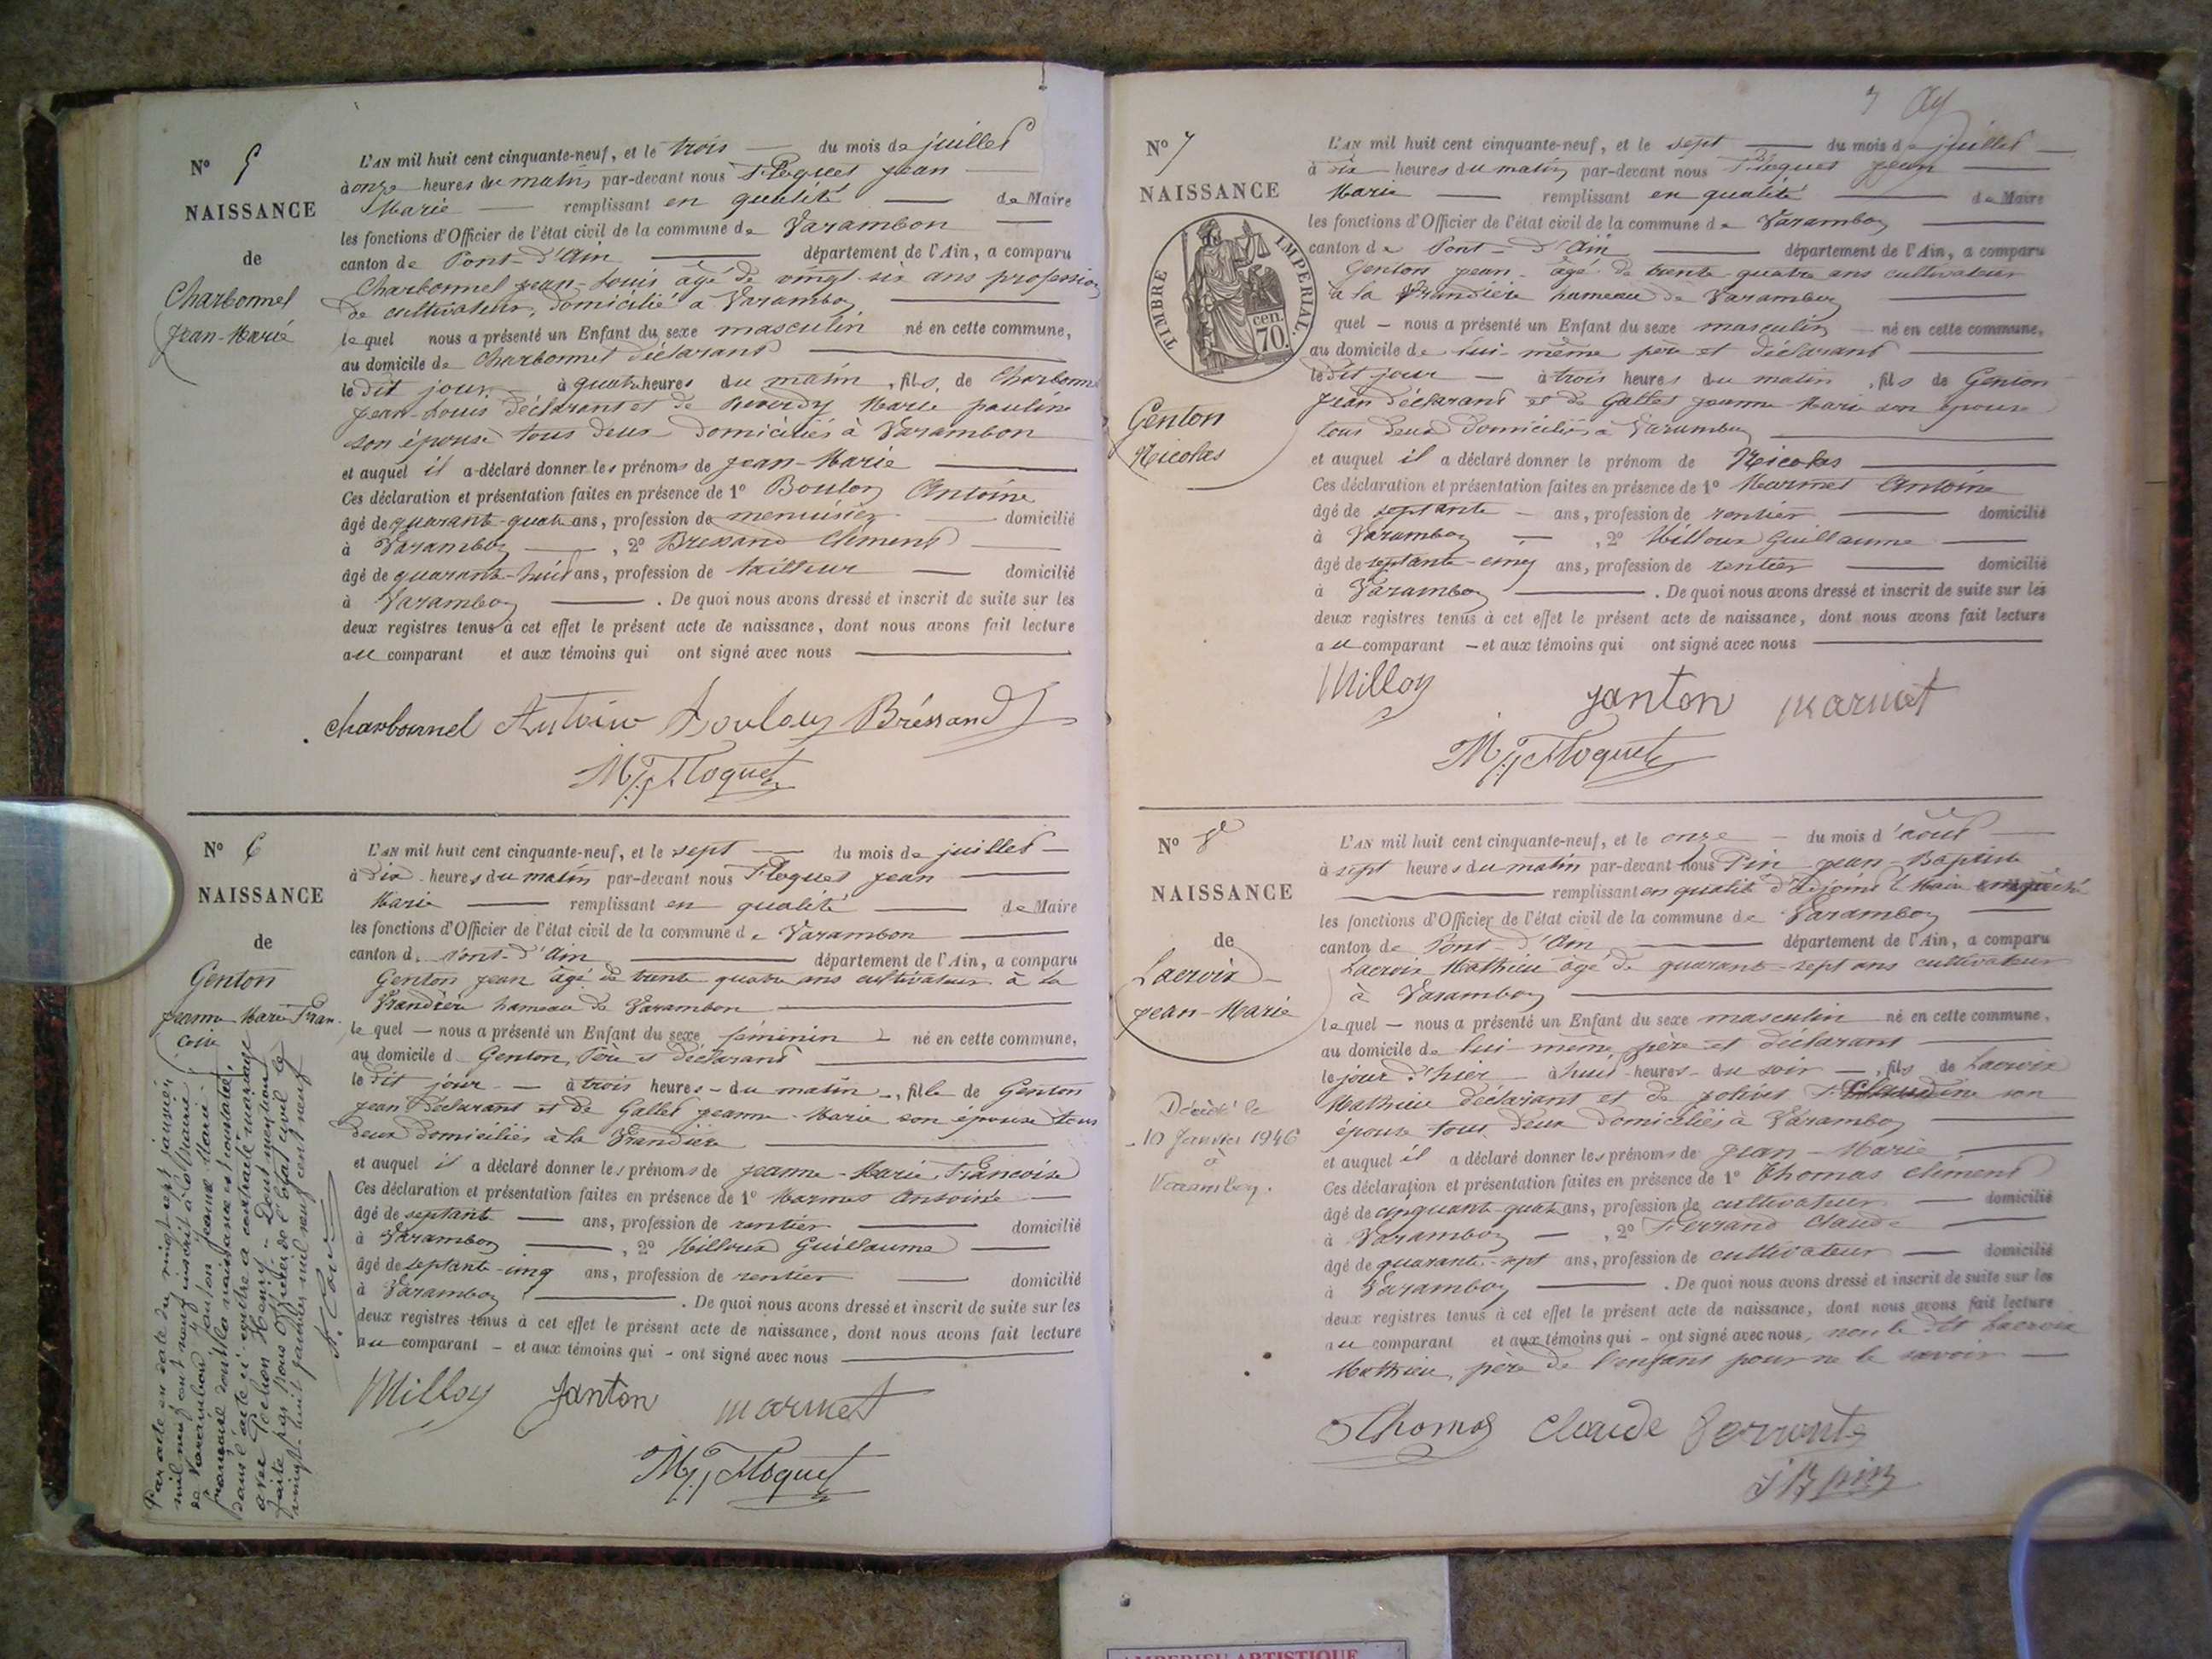 Nº 5
NAISSANCE
de
Charbonnel
Jean-Marie
L'AN mil huit cent cinquante-neuf, et le trois du mois de juillet
à onze heures du matin, par-devant nous Floquet Jean
Marie remplissant en qualité de Maire
les fonctions d'Officier de l'état civil de la commune de Varambon
canton de Pont-d'Ain département de l'Ain, a comparu
Charbonnel jean-Louis âgé de vingt-six ans profession
de cultivateur, domicilié à Varambon
le quel nous a présenté un Enfant du sexe masculin né en cette commune,
au domicile de Charbonnel déclarant
le dit jour à quatre heures du matin, fils de Charbonnel
Jean-Louis déclarant et de Reverdy Marie pauline
son épouse tous deux domiciliés à Varambon
et auquel il a déclaré donner les prénoms de Jean-Marie
Ces déclaration et présentation faites en présence de 1º Boulon Antoine
âgé de quarante-quatre ans, profession de menuisier domicilié
à Varambon, 2º Bressand Clément
âgé de quarante-huit ans, profession de tailleur domicilié
à Varambon. De quoi nous avons dressé et inscrit de suite sur les
deux registres tenus à cet effet le présent acte de naissance, dont nous avons fait lecture
au comparant et aux témoins qui ont signé avec nous
charbonnel Antoine Boulon Bréssand
M J Floquet
Nº 6
NAISSANCE
de
Genton
Jeanne-Marie Fran-
çoise
L'AN mil huit cent cinquante-neuf, et le sept du mois de juillet
à dix heures du matin par-devant nous Floquet Jean
Marie remplissant en qualité de Maire
les fonctions d'Officier de l'état civil de la commune de Varambon
canton d. Pont-d'Ain département de l'Ain, a comparu
Genton Jean âgé de trente quatre ans cultivateur à la
Brandière hameau de Varambon
le quel nous a présenté un Enfant du sexe féminin né en cette commune,
au domicile d Genton, Père et déclarant
le dit jour à trois heures du matin, fille de Genton
Jean déclarant et de Gallet Jeanne-Marie son épouse tous
deux domiciliés à la Brandière
et auquel il a déclaré donner les prénoms de Jeanne-Marie Francoise
Ces déclaration et présentation faites en présence de 1º Marmet Antoine
âgé de septante ans, profession de rentier domicilié
à Varambon, 2º Milloux Guillaume
âgé de septante-cinq ans, profession de rentier domicilié
à Varambon. De quoi nous avons dressé et inscrit de suite sur les
deux registres tenus à cet effet le présent acte de naissance, dont nous avons fait lecture
au comparant et aux témoins qui ont signé avec nous
Milloy Janton marmet
M J Floquet
Par acte en date du vingt sept janvier
mil neuf cent neuf inscrit à la Mairie
de Varambon, Janton Jeanne Marie
françoise dont la naissance est constatée
dans l'acte ci-contre a contracté mariage
avec Pochon Henry. Dont mention
faite par Nous Officier de l'état civil le
vingt huit janvier mil neuf cent neuf
7
Nº 7
NAISSANCE
TIMBRE IMPERIAL.
70 cen.
Genton
Nicolas
L'AN mil huit cent cinquante-neuf, et le sept du mois de juillet
à dix heures du matin par-devant nous Floquet Jean
Marie remplissant en qualité de Maire
les fonctions d'Officier de l'état civil de la commune de Varambon
canton de Pont-d'Ain département de l'Ain, a comparu
Genton Jean âgé de trente quatre ans cultivateur
à la Brandière hameau de Varambon
quel nous a présenté un Enfant du sexe masculin né en cette commune,
au domicile de lui-même père et déclarant
le dit jour à trois heures du matin, fils de Genton
Jean déclarant et de Gallet Jeanne Marie son épouse
tous deux domiciliés à Varambon
et auquel il a déclaré donner le prénom de Nicolas
Ces déclaration et présentation faites en présence de 1º Marmet Antoine
âgé de septante ans, profession de rentier domicilié
à Varambon, 2º Milloux Guillaume
âgé de septante-cinq ans, profession de rentier domicilié
à Varambon. De quoi nous avons dressé et inscrit de suite sur les
deux registres tenus à cet effet le présent acte de naissance, dont nous avons fait lecture
au comparant et aux témoins qui ont signé avec nous
Milloy Janton marmet
M J Floquet
Nº 8
NAISSANCE
de
Lacroix
Jean-Marie
Décédé le
10 Janvier 1946
à
Varambon.
L'AN mil huit cent cinquante-neuf, et le onze du mois d'août
à sept heures du matin par-devant nous Pin Jean-Baptiste
remplissant en qualité d'Adjoint le Maire empêché
les fonctions d'Officier de l'état civil de la commune de Varambon
canton de Pont-d'Ain département de l'Ain, a comparu
Lacroix Mathieu âgé de quarante-sept ans cultivateur
à Varambon
le quel nous a présenté un Enfant du sexe masculin né en cette commune,
au domicile de lui-même, père et déclarant
le jour d'hier à huit heures du soir, fils de Lacroix
Mathieu déclarant et de Claudine son
épouse tous deux domiciliés à Varambon
et auquel il a déclaré donner les prénoms de Jean-Marie
Ces déclaration et présentation faites en présence de 1º Thomas Clément
âgé de cinquante-quatre ans, profession de cultivateur domicilié
à Varambon, 2º Ferrand Claude
âgé de quarante-sept ans, profession de cultivateur domicilié
à Varambon. De quoi nous avons dressé et inscrit de suite sur les
deux registres tenus à cet effet le présent acte de naissance, dont nous avons fait lecture
au comparant et aux témoins qui ont signé avec nous, non le dit Lacroix
Mathieu, père de l'enfant pour ne le savoir
Thomas Claude ferrand
J B pin
AMBERIEU ARTISTIQUE